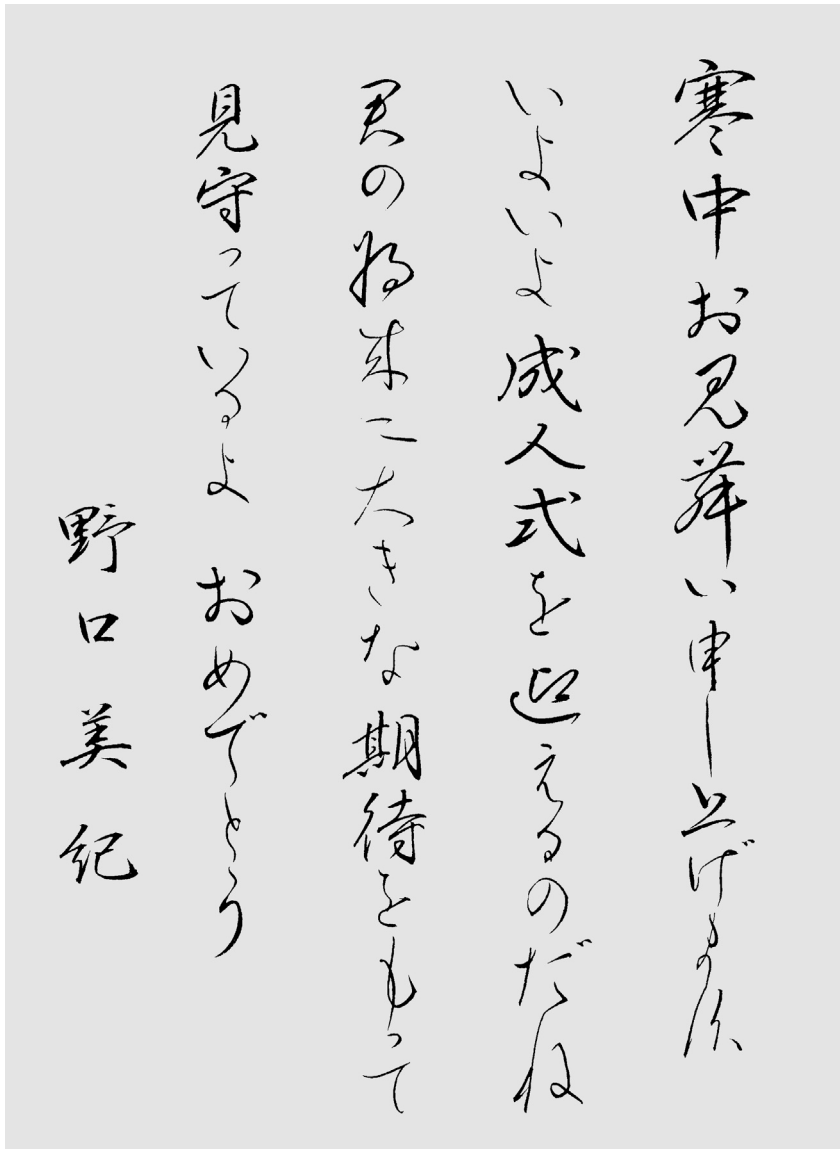 寒中お見舞い申し上げます
いよいよ成人式を迎えるのだね
君の将来に大きな期待をもって
見守っているよ おめでとう
野口美紀